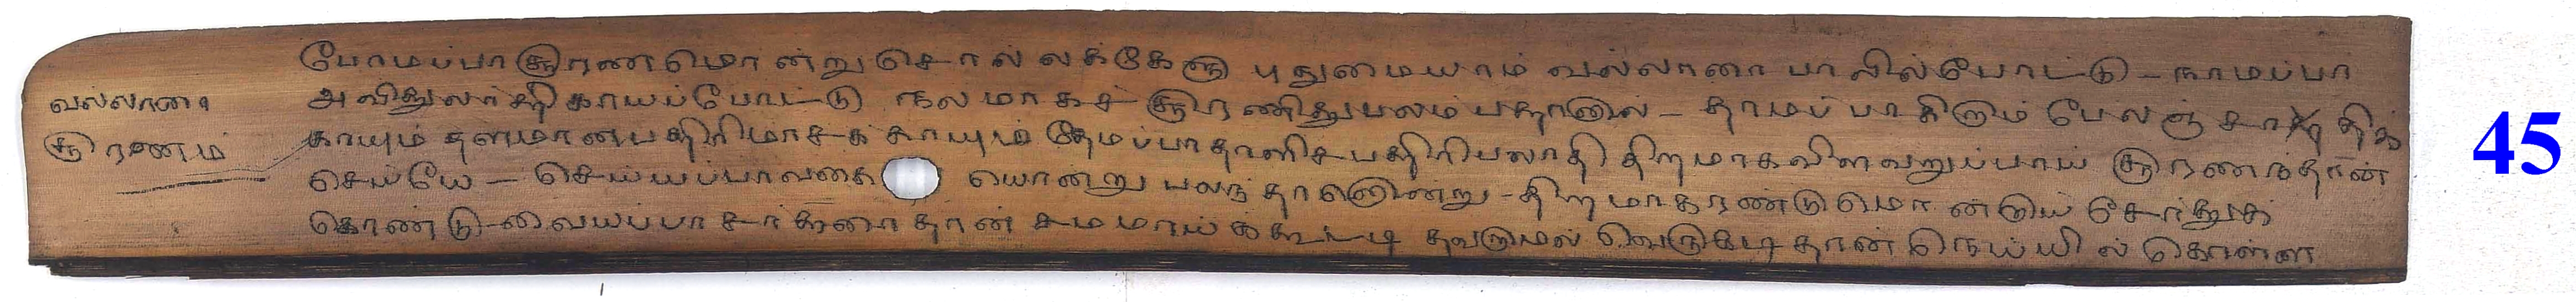 போமப்பா சூரணமொன்று சொல்லக்கேளு புதுமையாம் வல்லாரை பாவில்போட்டு - நாமப்பா
வல்லாரை
அவித்துலர்த்தி காயப்போட்டு நலமாகச் சூரணித்து பலம் பதானுல் - தாமப்பா கிடும் பேலஞ்சாதிக்
சூரணம்
காயும் தளமானபத்திரிமாசக் காயும் தேமப்பா தாளிசபத்திரிபலாதி திறமாகவிளவறுப்பாய் சூரணந்தான்
செய்யே - செய்யப்பாவகை யொன்று பலந் தானொன்று - திறமாகரண்டுமொன்றாய் சேர்த்துக்
கொண்டு - வையப்பா சர்க்கரைதான் சமமாய்க்கூட்டி தவறாமல் வெருகடிதான் நெய்யில் கொள்ள
45